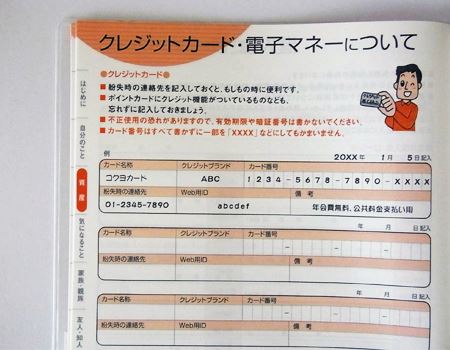 クレジットカード・電子マネーについて
●クレジットカード●
■ 紛失時の連絡先を記入しておくと、もしもの時に便利です。
■ ポイントカードにクレジット機能がついているものなども、
忘れずに記入しておきましょう。
■ 不正使用の恐れがありますので、有効期限や暗証番号は書かないでください。
■ カード番号はすべて書かずに一部を「XXXX」などにしてもかまいません。
はじめに
自分のこと
資産
気になること
家族・親族
友人・知人
例
20XX年 1月 5日記入
カード名称 クレジットブランド カード番号
コクヨカード ABC 1234-5678-7890-XXXX
紛失時の連絡先 Web用ID 備考
01-2345-7890 abcdef 年会費無料、公共料金支払い用
年 月 日記入
カード名称 クレジットブランド カード番号
- - -
紛失時の連絡先 Web用ID 備考
年 月 日記入
カード名称 クレジットブランド カード番号
- - -
紛失時の連絡先 Web用ID 備考